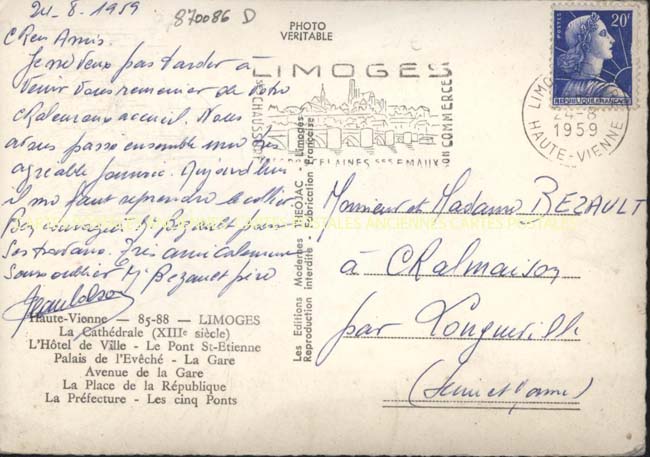 24-8-1959
870086 D
PHOTO
VERITABLE
Chers Amis.
Je ne veux pas tarder à
venir vous remercier de votre
chaleureux accueil. Nous
avons passé ensemble une très
agréable journée. Aujourd'hui
il me faut reprendre le collier
Bon courage à Mr Bezault pour
ses travaux. Très amicalement
Sans oublier Mr Bezault père
LIMOGES
SES CHAUSSURES
SON COMMERCE
SES PORCELAINES SES EMAUX
20F
POSTES
REPUBLIQUE FRANÇAISE
LIMOGES
24-8
1959
HAUTE-VIENNE
Monsieur et Madame BEZAULT
à Chalmaison
par Longueville
(Seine et Marne)
ANCIENNES CARTES POSTALES
Les Editions Modernes THEOJAC - Limoges
Reproduction interdite - Fabrication Française
Haute-Vienne — 85-88 — LIMOGES
La Cathédrale (XIIIe siècle)
L'Hôtel de Ville - Le Pont St-Etienne
Palais de l'Evêché - La Gare
Avenue de la Gare
La Place de la République
La Préfecture - Les cinq Ponts